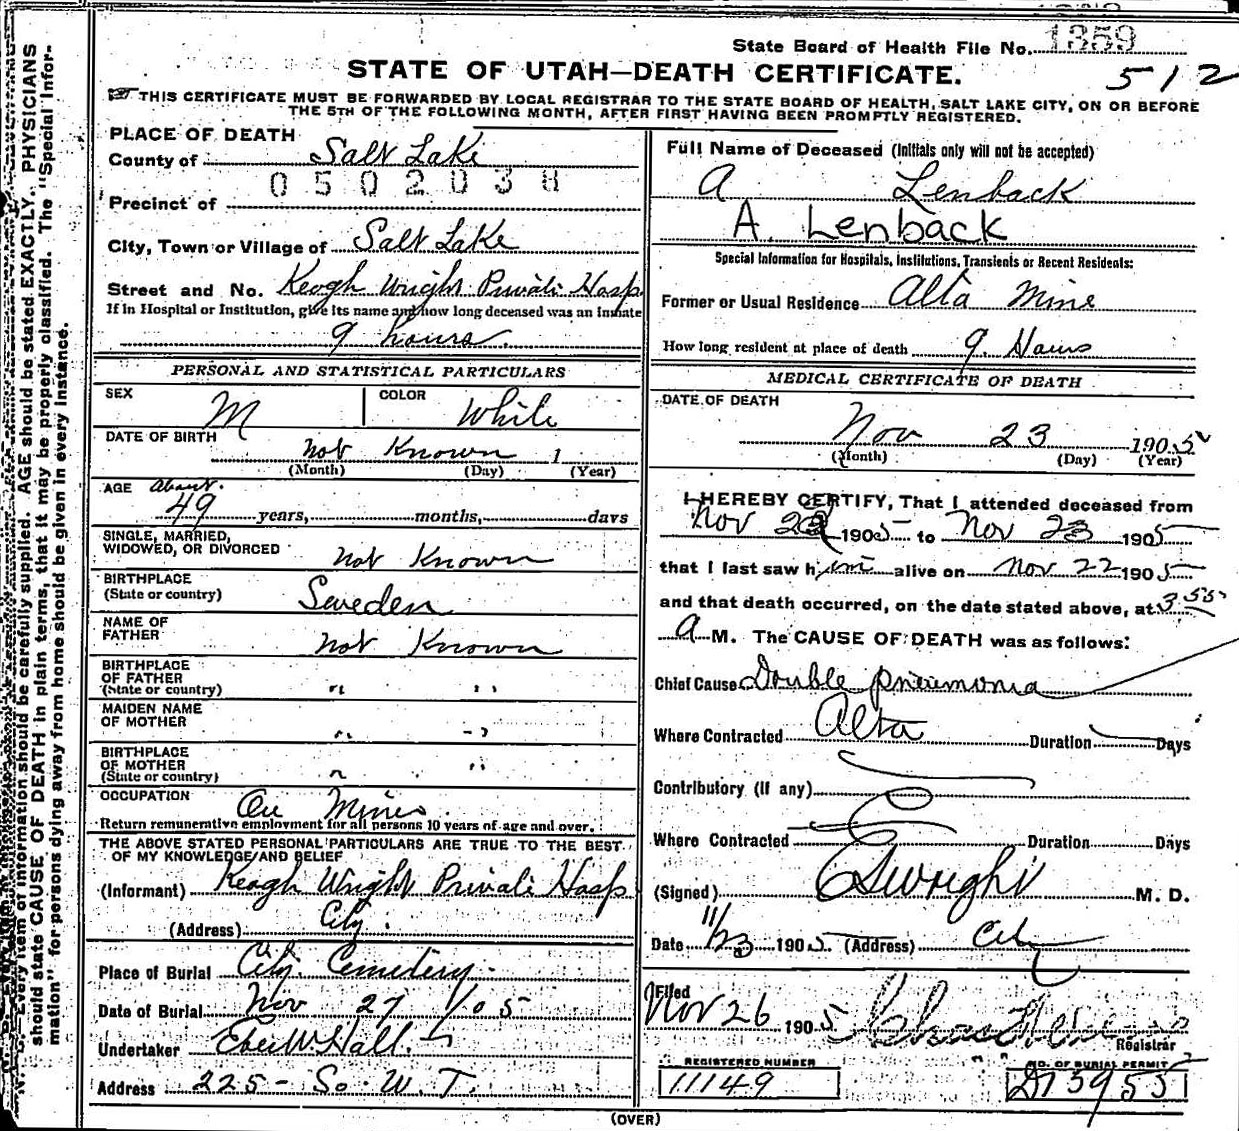 State Board of Health File No. 1359
STATE OF UTAH—DEATH CERTIFICATE.
512
THIS CERTIFICATE MUST BE FORWARDED BY LOCAL REGISTRAR TO THE STATE BOARD OF HEALTH, SALT LAKE CITY, ON OR BEFORE
THE 5TH OF THE FOLLOWING MONTH, AFTER FIRST HAVING BEEN PROMPTLY REGISTERED.
PLACE OF DEATH
County of Salt Lake
0502038
Precinct of
City, Town or Village of Salt Lake
Street and No. Keogh Wright Private Hosp
If in Hospital or Institution, give its name and how long deceased was an inmate
9 hours.
PERSONAL AND STATISTICAL PARTICULARS
SEX M COLOR White
DATE OF BIRTH not Known 1
(Month) (Day) (Year)
AGE About
49 years, months, days
SINGLE, MARRIED,
WIDOWED, OR DIVORCED not Known
BIRTHPLACE
(State or country) Sweden
NAME OF
FATHER not Known
BIRTHPLACE
OF FATHER
(State or country) " "
MAIDEN NAME
OF MOTHER " "
BIRTHPLACE
OF MOTHER
(State or country) " "
OCCUPATION Ore Miner
Return remunerative employment for all persons 10 years of age and over.
THE ABOVE STATED PERSONAL PARTICULARS ARE TRUE TO THE BEST
OF MY KNOWLEDGE AND BELIEF
(Informant) Keogh Wright Private Hosp
(Address) City.
Place of Burial City Cemetery.
Date of Burial Nov 27 1905
Undertaker Eber W. Hall.
Address 225- So. W. T.
Full Name of Deceased (Initials only will not be accepted)
A Lenback
A. Lenback
Special Information for Hospitals, Institutions, Transients or Recent Residents:
Former or Usual Residence Alta Mine
How long resident at place of death 9. Hours
MEDICAL CERTIFICATE OF DEATH
DATE OF DEATH
Nov 23 1905
(Month) (Day) (Year)
I HEREBY CERTIFY, That I attended deceased from
Nov 22 1905 to Nov 23 1905
that I last saw him alive on Nov 22 1905
and that death occurred, on the date stated above, at 3 55
A M. The CAUSE OF DEATH was as follows:
Chief Cause Double pneumonia
Where Contracted Alta Duration Days
Contributory (If any)
Where Contracted Duration Days
(Signed) Wright M. D.
Date 11/23 1905. (Address) City
Filed
Nov 26 1905
Registrar
REGISTERED NUMBER
11149
NO. OF BURIAL PERMIT
AGE should be stated EXACTLY. PHYSICIANS
should state CAUSE OF DEATH in plain terms, that it may be properly classified. The "Special Infor-
mation" for persons dying away from home should be given in every instance.
(OVER)